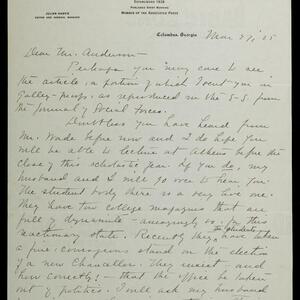 ESTABLISHED 1828
PUBLISHED EVERY MORNING
MEMBER OF THE ASSOCIATED PRESS
JULIAN HARRIS
EDITOR AND GENERAL MANAGER
Columbus, Georgia
Mar 27, '25
Dear Mr. Anderson -
Perhaps you may care to see
the article, a portion of which I sent you in
Galley-proofs, as reproduced in the E-S. from
the Journal of Social Forces.
Doubtless you have heard from
Mr. Wade before now and I do hope you
will be able to lecture at Athens before the
close of this scholastic year. If you do, my
husband and I will go over to hear you.
The student body there is a very live one.
They have two college magazines that are
full of dynamite - amazingly so, for this
reactionary state. Recently they, the students, have taken
a fine, courageous stand on the election
of a new Chancellor. They insist - and
how correctly! - that the office be taken
out of politics. I will ask my husband